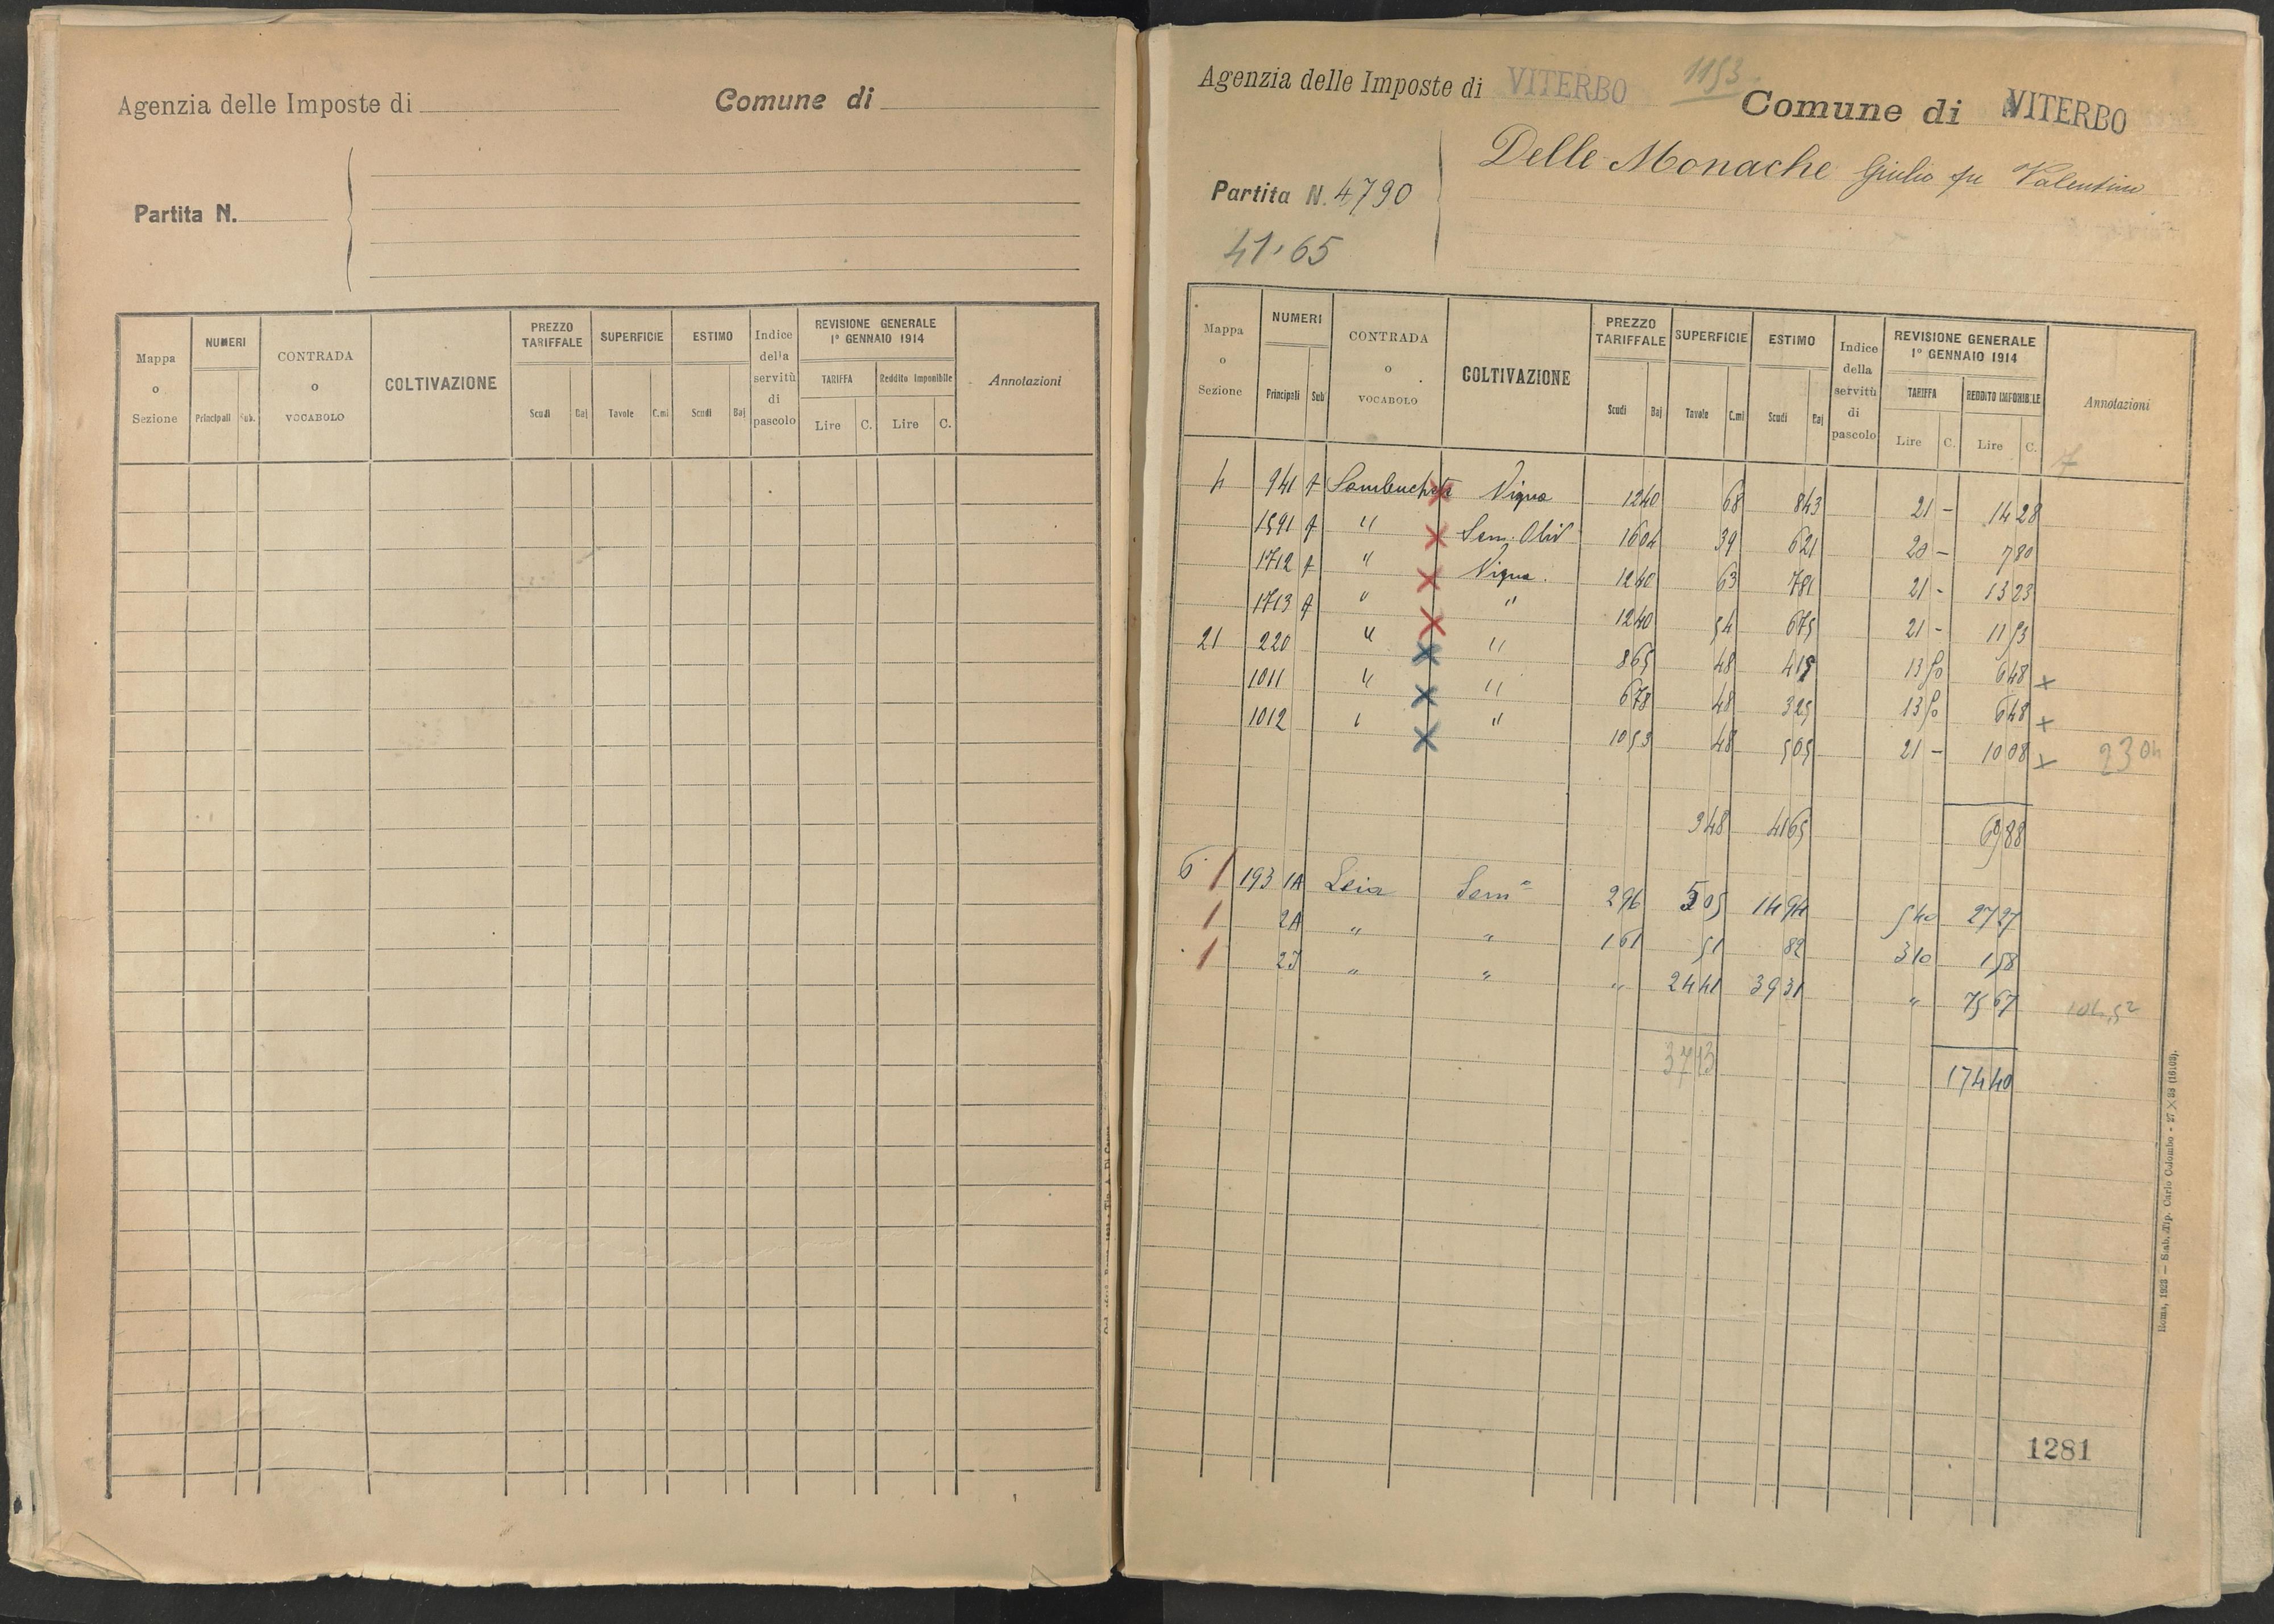 Agenzia delle Imposte di
Comune di
Partita N.
Mappa o Sezione | NUMERI Principali Sub. | CONTRADA o VOCABOLO | COLTIVAZIONE | PREZZO TARIFFALE Scudi Baj | SUPERFICIE Tavole C.mi | ESTIMO Scudi Baj | Indice della servitù di pascolo | REVISIONE GENERALE 1° GENNAIO 1914 TARIFFA Lire C. Reddito Imponibile Lire C. | Annotazioni
Agenzia delle Imposte di VITERBO 1153
Comune di VITERBO
Delle Monache Giulio fu Valentino
Partita N. 4790
41.65
Mappa o Sezione | NUMERI Principali Sub | CONTRADA o VOCABOLO | COLTIVAZIONE | PREZZO TARIFFALE Scudi Baj | SUPERFICIE Tavole C.mi | ESTIMO Scudi Baj | Indice della servitù di pascolo | REVISIONE GENERALE 1° GENNAIO 1914 TARIFFA Lire C. REDDITO IMPONIBILE Lire C. | Annotazioni
4 941 Vigna 12 40 68 8 43 21 - 14 28
1591 " Sem. Oliv 16 04 39 6 21 20 - 7 80
1712 " Vigna. 12 40 63 7 81 21 - 13 23
1713 " " 12 40 54 6 75 21 - 11 53
21 220 " " 8 65 48 4 15 13 50 6 48 x
1011 " " 6 78 48 3 25 13 50 6 48 x
1012 " " 10 53 48 5 05 21 - 10 08 x 23 04
3 48 41 65 69 88
6 193 1A Leia Sem° 2 96 5 05 14 94 5 40 27 27
2A " " 1 61 51 82 3 10 1 58
" " " 24 41 39 31 " 75 67 104,52
37 13 174 40
1281
Roma, 1923 — Stab. Tip. Carlo Colombo - 27 X 38 (16108).